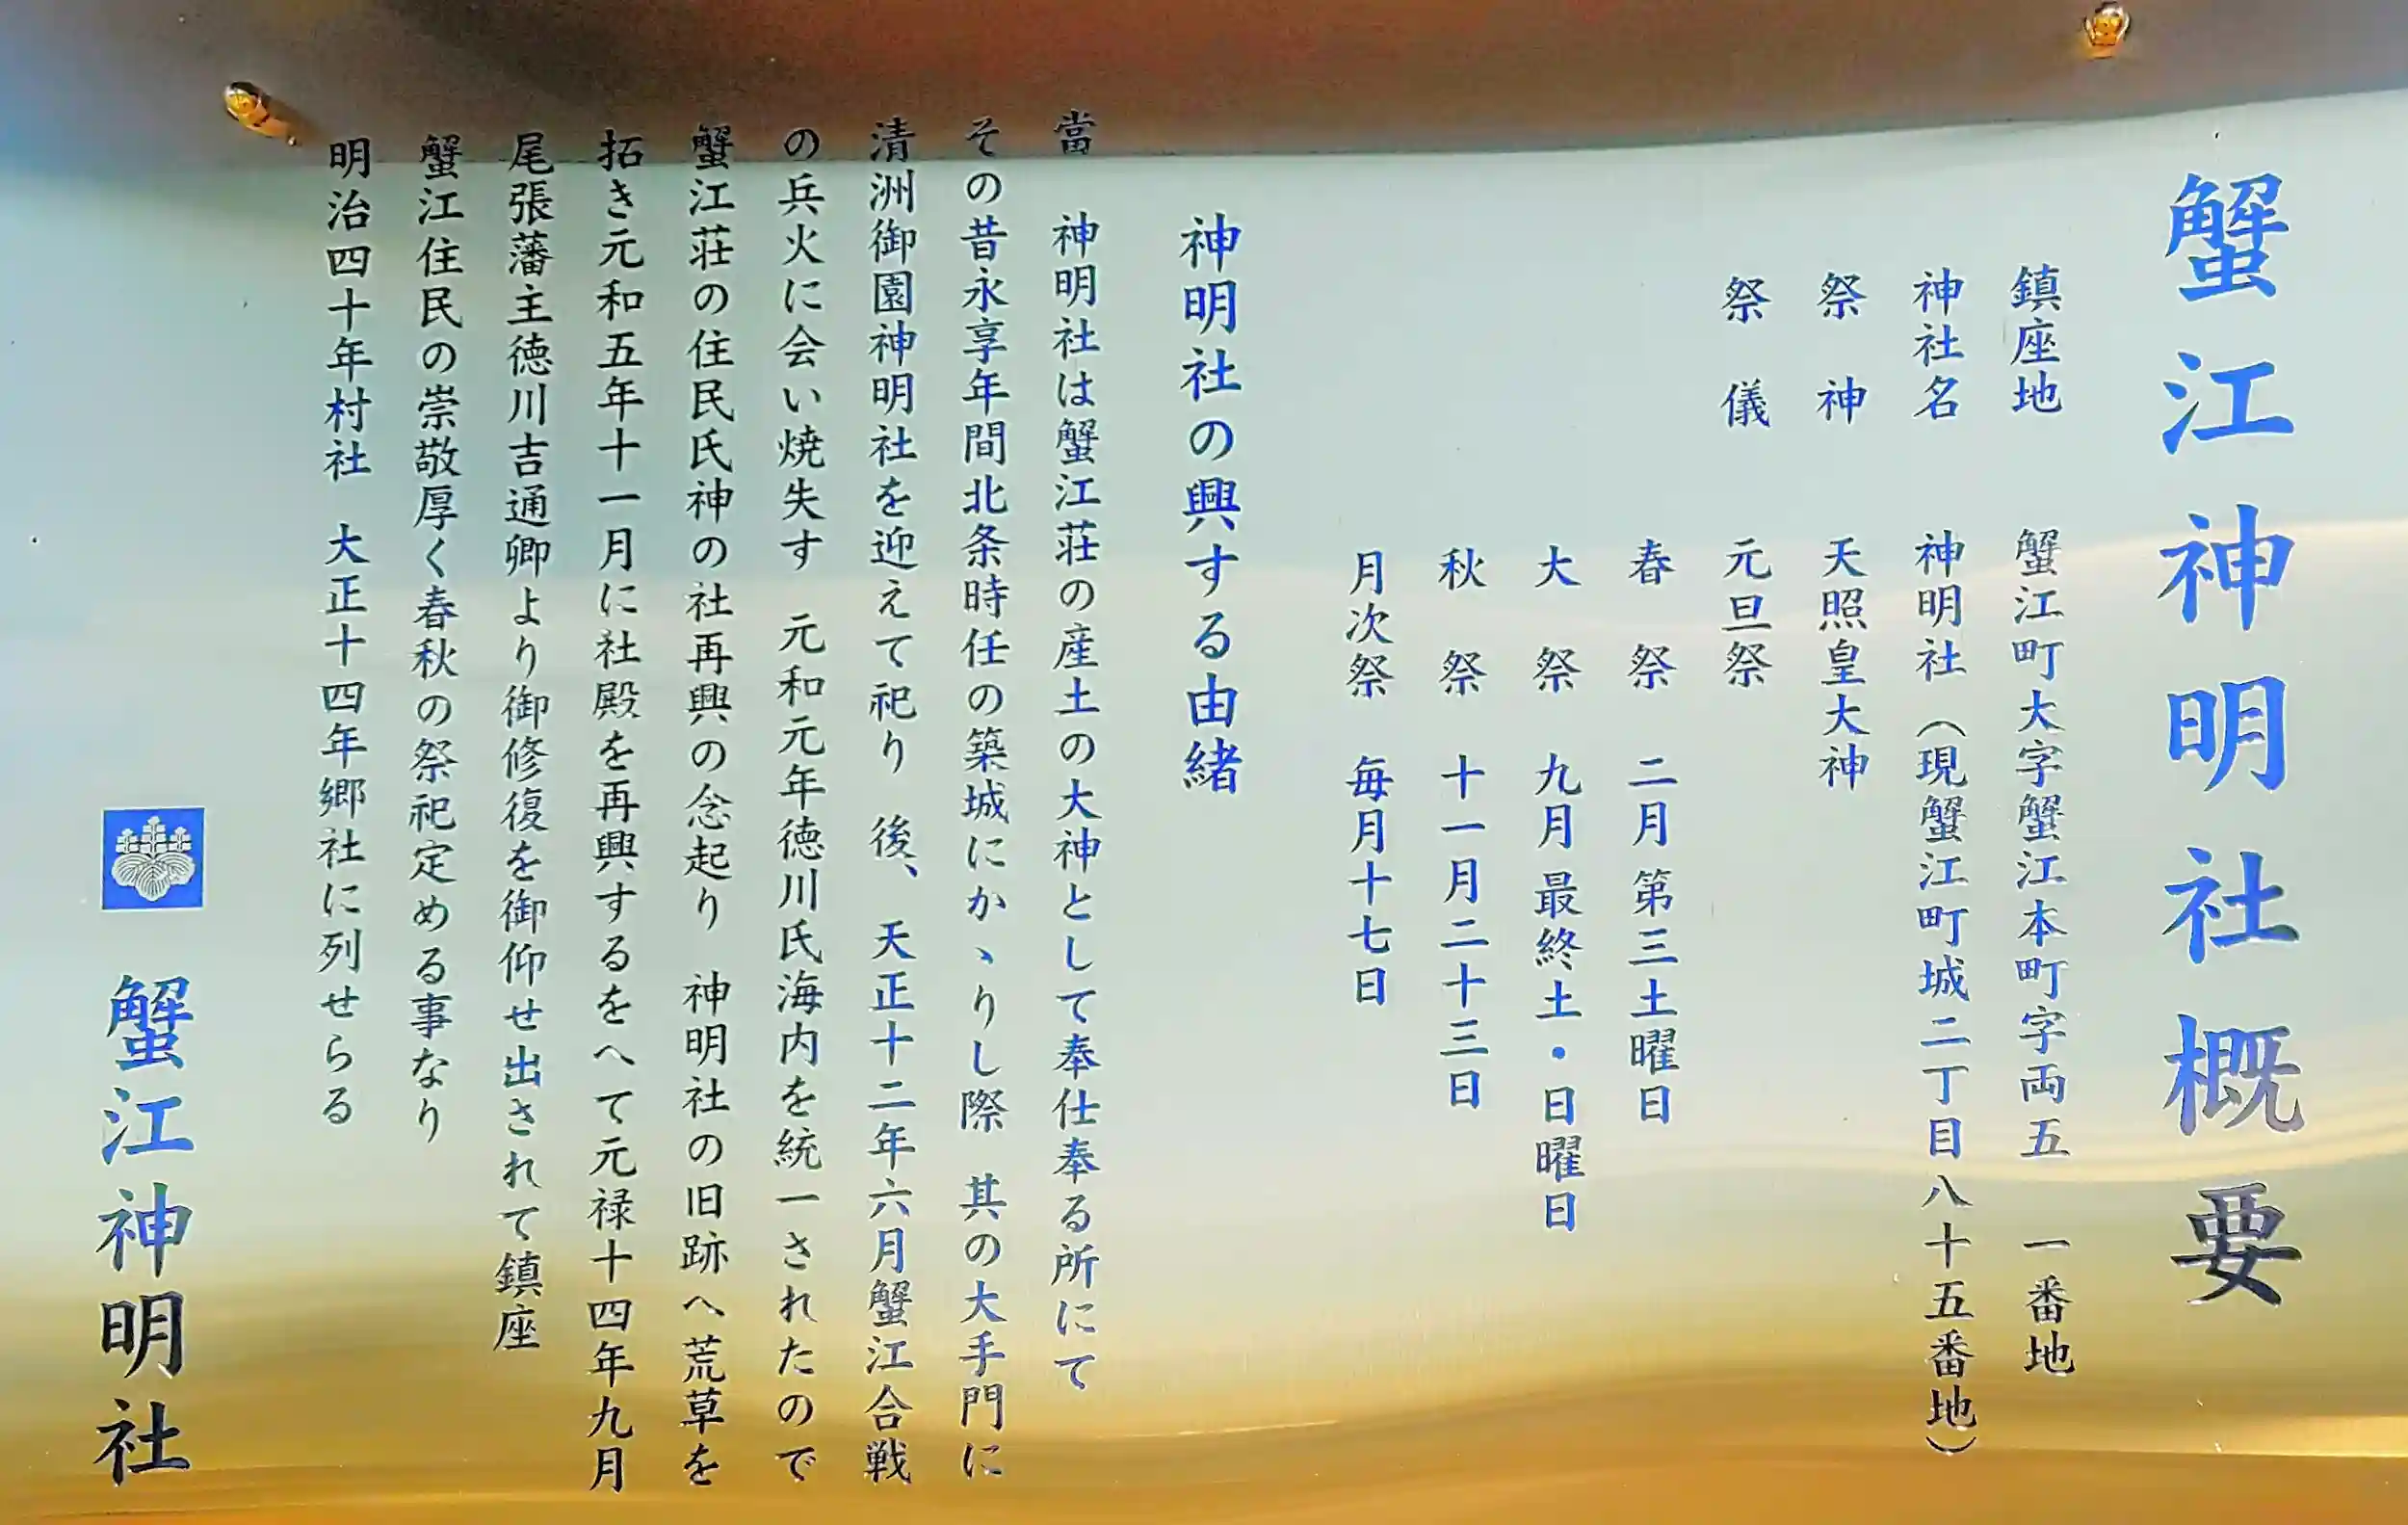 蟹江神明社概要
鎮座地　蟹江町大字蟹江本町字両五　一番地
神社名　神明社（現蟹江町城二丁目八十五番地）
祭　神　天照皇大神
祭　儀　元旦祭
春　祭　二月第三土曜日
大　祭　九月最終土・日曜日
秋　祭　十一月二十三日
月次祭　毎月十七日
神明社の興する由緒
當　神明社は蟹江荘の産土の大神として奉仕奉る所にて
その昔永享年間北条時任の築城にかゝりし際　其の大手門に
清洲御園神明社を迎えて祀り　後、天正十二年六月蟹江合戦
の兵火に会い焼失す　元和元年徳川氏海内を統一されたので
蟹江荘の住民氏神の社再興の念起り　神明社の旧跡へ荒草を
拓き元和五年十一月に社殿を再興するをへて元禄十四年九月
尾張藩主徳川吉通卿より御修復を御仰せ出されて鎮座
蟹江住民の崇敬厚く春秋の祭祀定める事なり
明治四十年村社　大正十四年郷社に列せらる
蟹江神明社